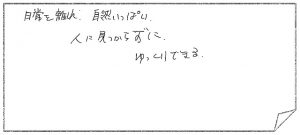 日常を離れ、自然いっぱい。
人に見つからずに、
ゆっくりできる。